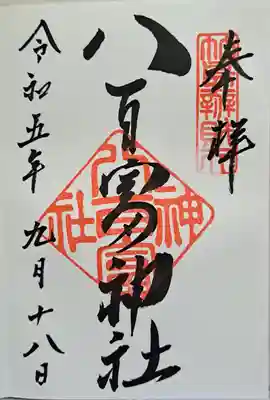 奉拝
八百富神社
令和五年九月十八日
八百富
神社